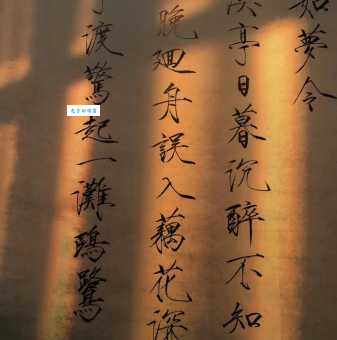 如夢令
溪亭日暮沉醉不知
晚廻舟誤入藕花深
渡驚起一灘鷗鷺